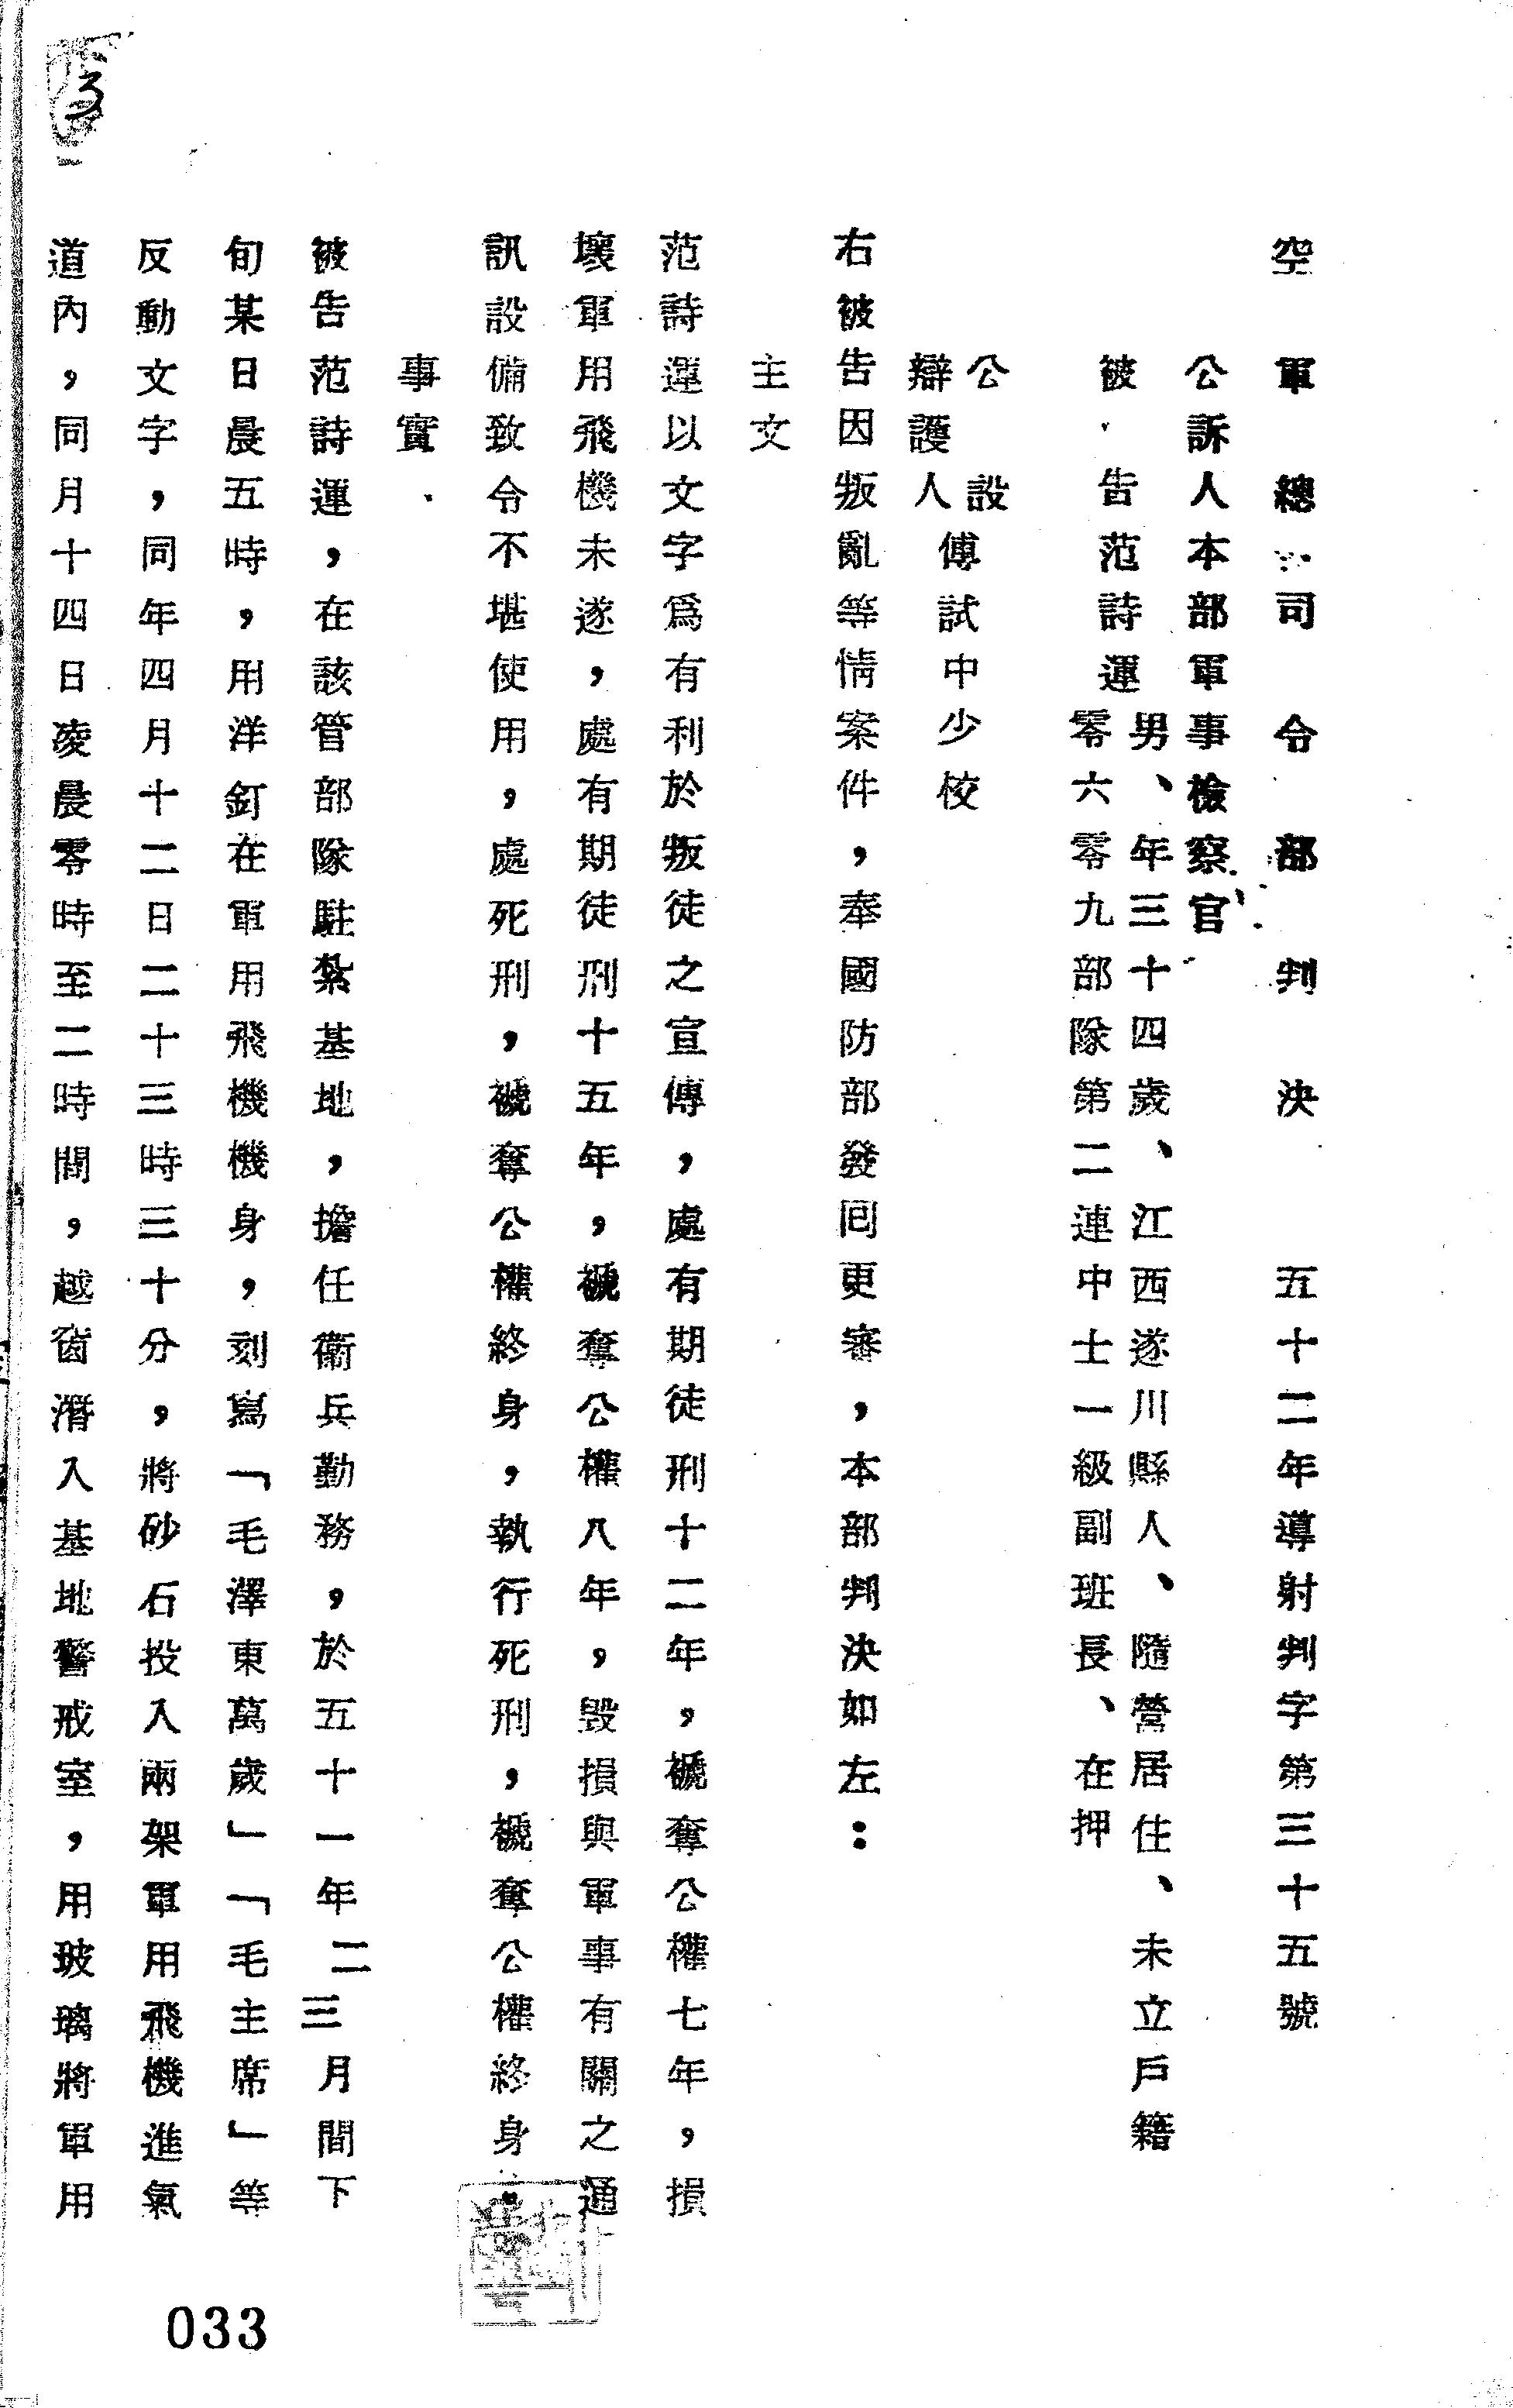 空軍總司令部判決　五十二年導射判字第三十五號
公訴人本部軍事檢察官
被告范詩運
男、年三十四歲、江西遂川縣人、隨營居住、未立戶籍
零六零九部隊第二連中士一級副班長、在押
公設
辯護人
傅試中少校
右被告因叛亂等情案件，奉國防部發回更審，本部判決如左：
主文
范詩運以文字為有利於叛徒之宣傳，處有期徒刑十二年，褫奪公權七年，損
壞軍用飛機未遂，處有期徒刑十五年，褫奪公權八年，毀損與軍事有關之通
訊設備致令不堪使用，處死刑，褫奪公權終身，執行死刑，褫奪公權終身。
事實
被告范詩運，在該管部隊駐紮基地，擔任衛兵勤務，於五十一年二三月間下
旬某日晨五時，用洋釘在軍用飛機機身，刻寫「毛澤東萬歲」「毛主席」等
反動文字，同年四月十二日二十三時三十分，將砂石投入兩架軍用飛機進氣
道內，同月十四日凌晨零時至二時間，越窗潛入基地警戒室，用玻璃將軍用
033